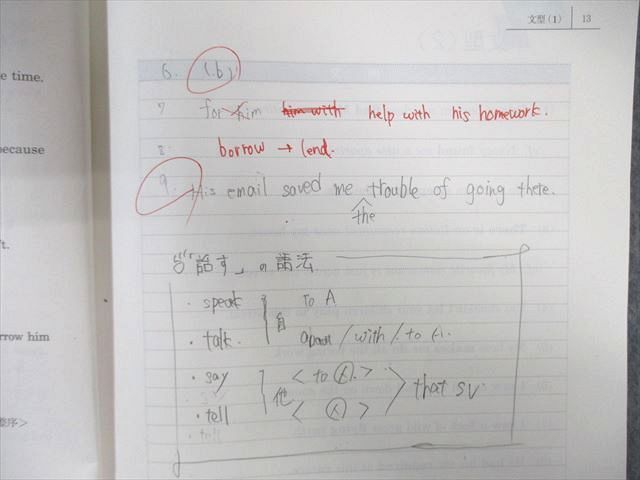 文型(1) 13
e time.
because
t.
rrow him
整序>
6. (b)
7 for him him with help with his homework.
8: borrow → lend.
9. His email saved me trouble of going there.
the
「話す」の語法
・speak 自 to A
・talk. about / with / to A.
・say 他 < to 人. > that SV
・tell < 人 >